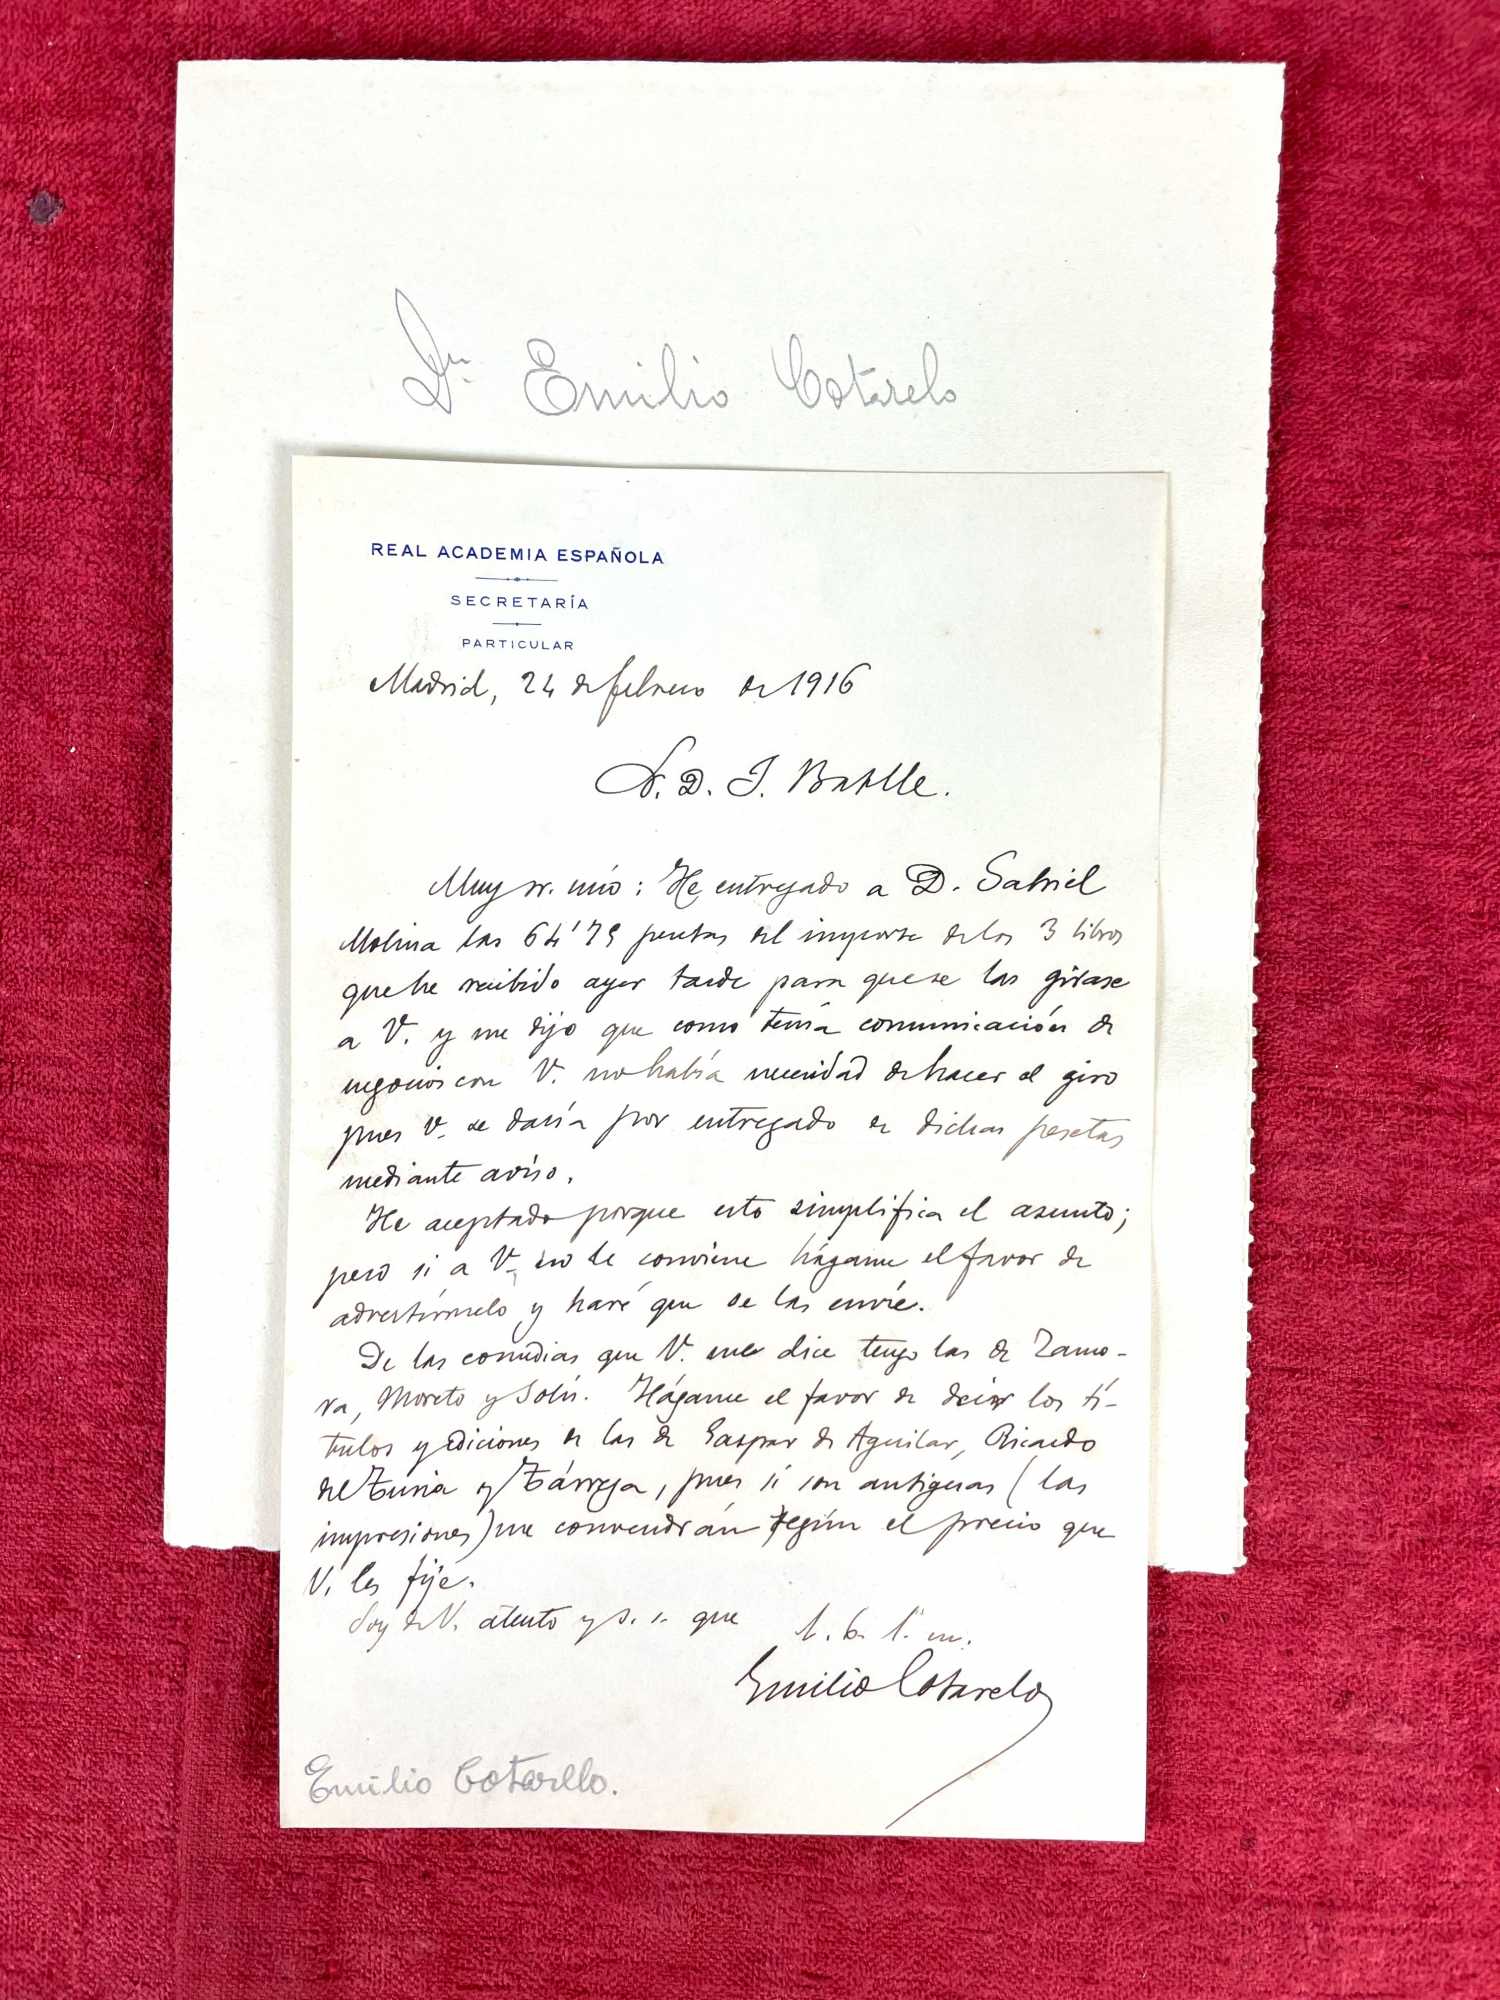 Dn. Emilio Cotarelo
REAL ACADEMIA ESPAÑOLA
SECRETARÍA
PARTICULAR
Madrid, 24 de febrero de 1916
S. D. J. Batlle.
Muy sr. mío: He entregado a D. Gabriel
Molina las 64'75 pesetas del importe de los 3 libros
que he recibido ayer tarde para que se las girase
a V. y me dijo que como tenía comunicación de
negocios con V. no había necesidad de hacer el giro
pues V. se daría por entregado de dichas pesetas
mediante aviso.
He aceptado porque esto simplifica el asunto;
pero si a V. no le conviene hágame el favor de
advertírmelo y haré que se las envíe.
De las comedias que V. me dice tengo las de Zamo-
ra, Moreto y Solís. Hágame el favor de decir los tí-
tulos y ediciones de las de Gaspar de Aguilar, Ricardo
del Turia y Tárrega, pues si son antiguas (las
impresiones) me convendrán según el precio que
V. les fije.
Soy de V. atento y s. s. que
l. b. l. m.
Emilio Cotarelo
Emilio Cotarello.